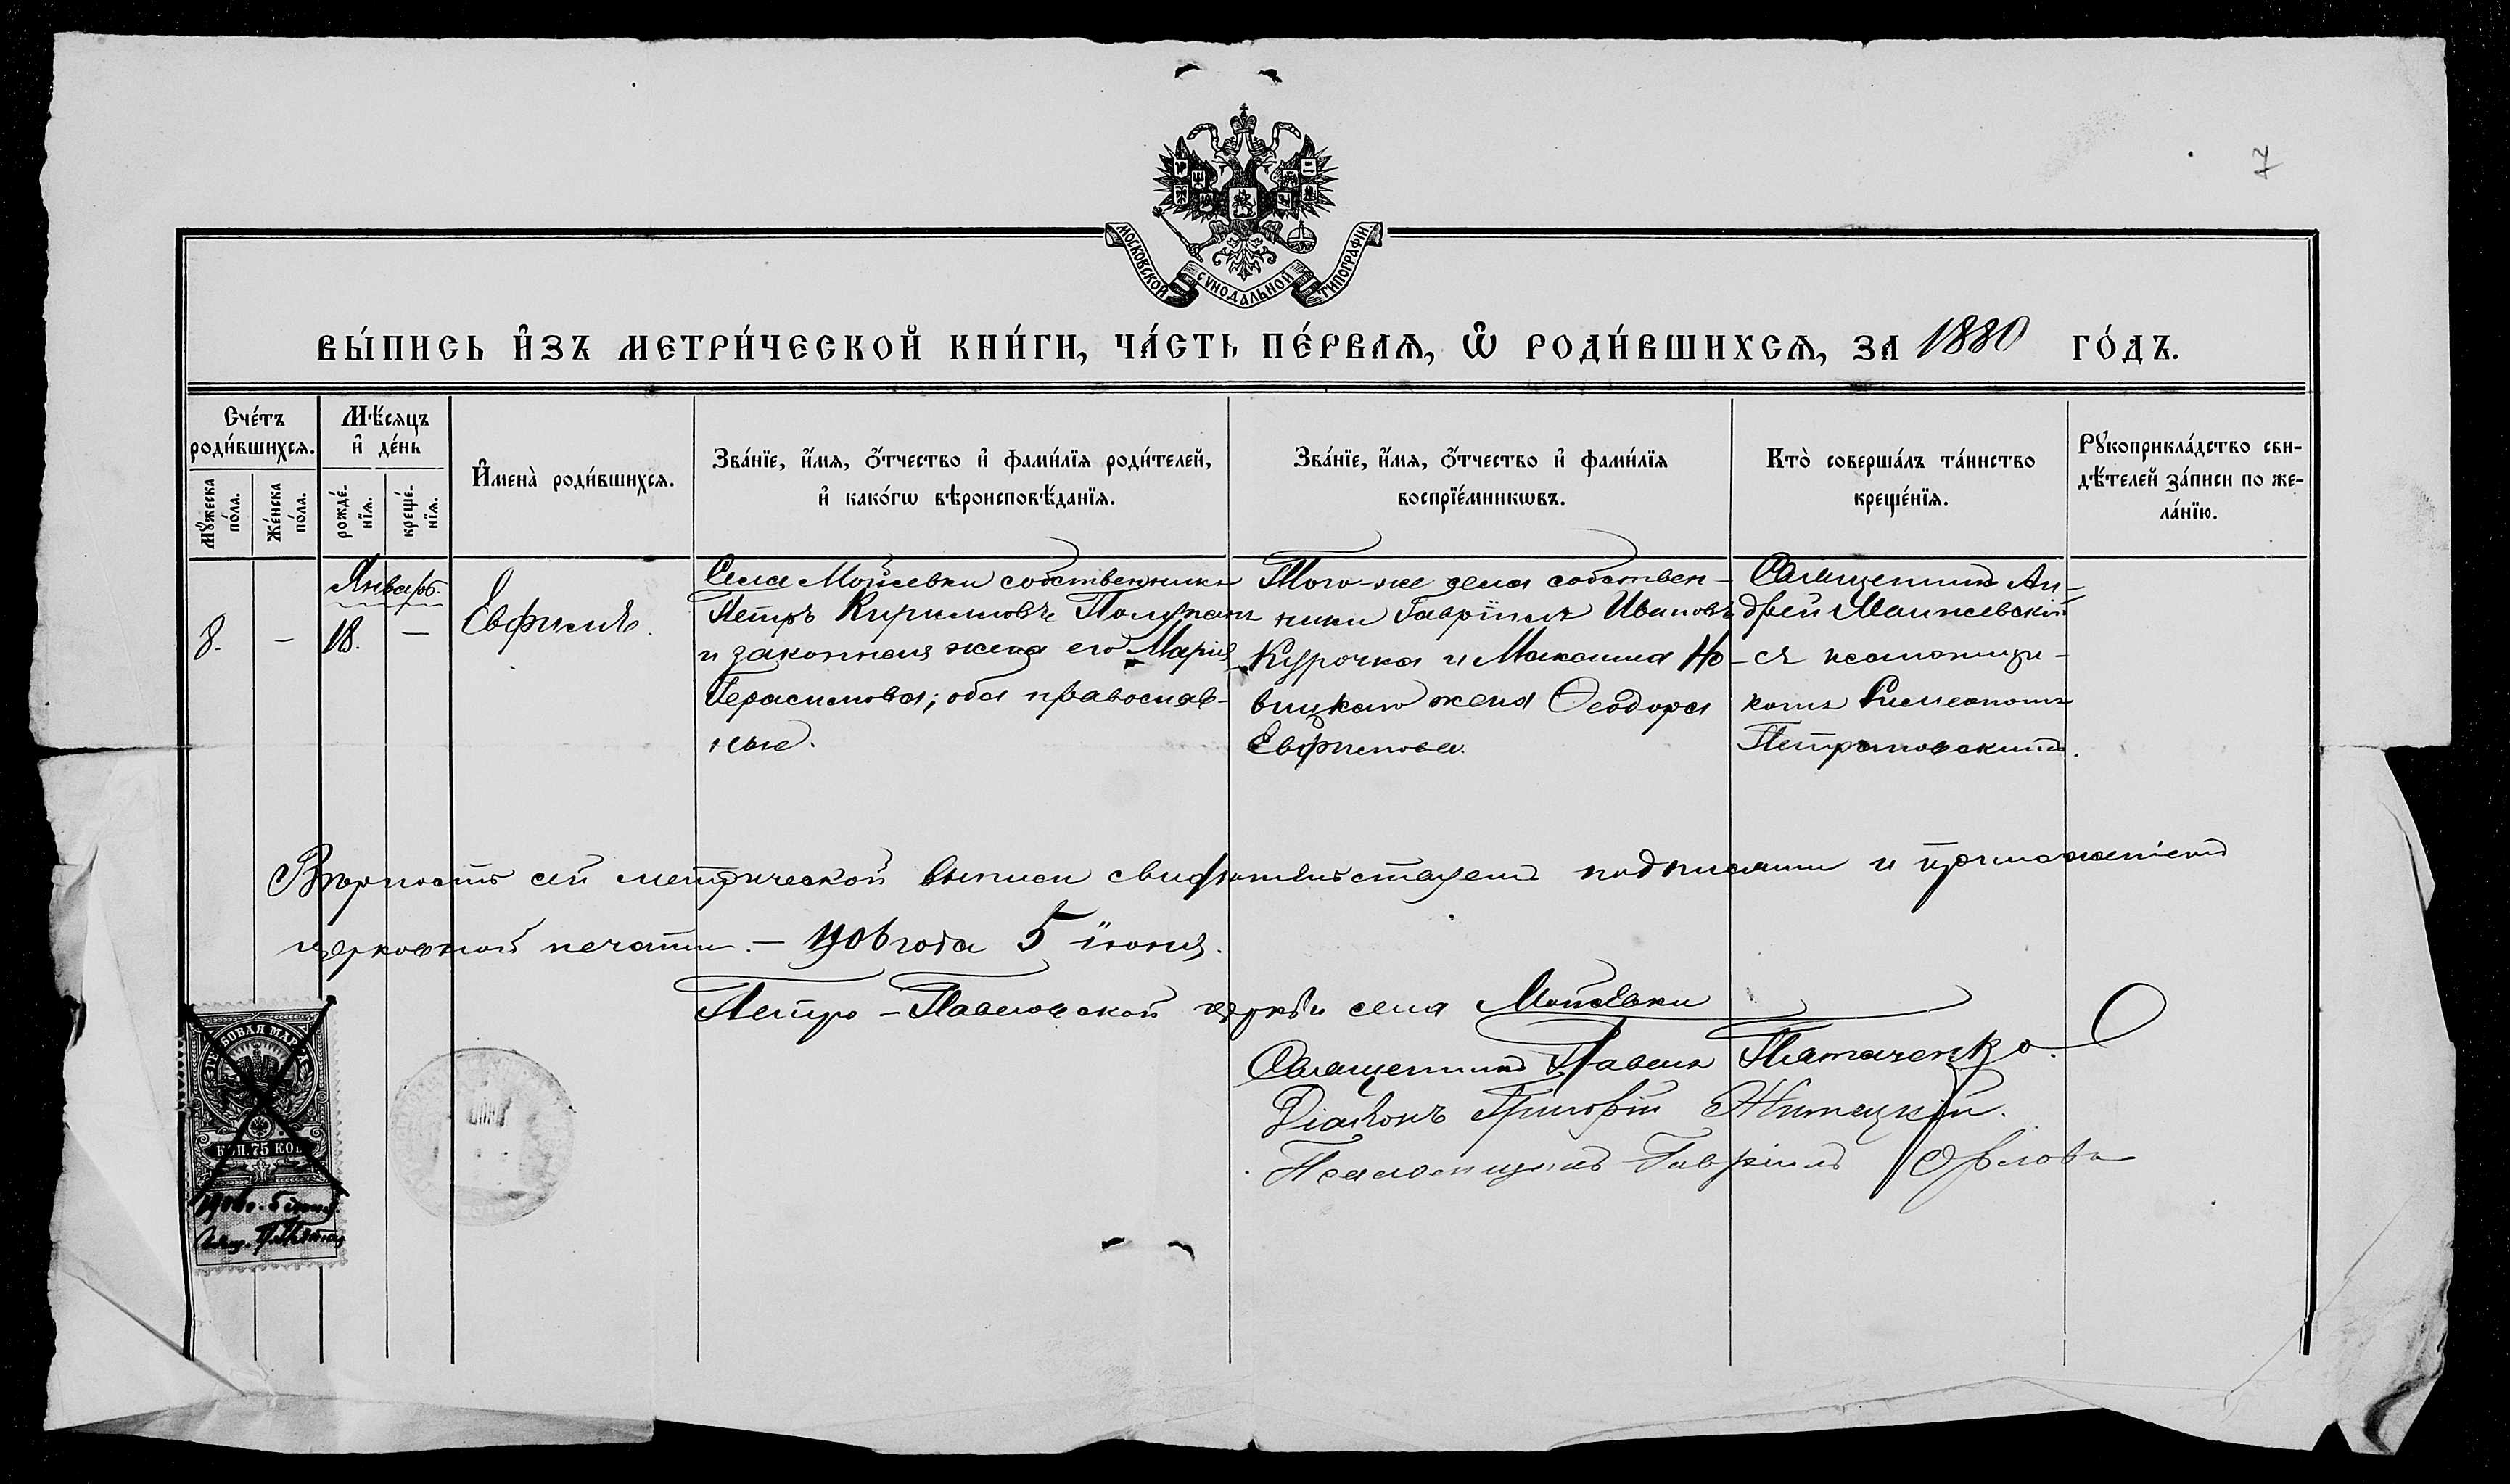 7
МОСКОВСКОЙ СѴНОДАЛЬНОЙ ТИПОГРАФІИ
ВЫ́ПИСЬ И҆ЗЪ МЕТРИ́ЧЕСКОЙ КНИ́ГИ, ЧА́СТЬ ПЕ́РВАѦ, Ѡ҆ РОДИ́ВШИХСѦ, ЗА 1880 ГО́ДЪ.
Сче́тъ
роди́вшихсѧ.
Мꙋ́жеска
по́ла.
Же́нска
по́ла.
Мѣ́сяцъ
и҆ де́нь
рожде́-
нїѧ.
креще́-
нїѧ.
И҆мена̀ роди́вшихсѧ.
Зва́нїе, и҆́мѧ, ѻ҆́тчество и҆ фами́лїѧ роди́телей,
и҆ како́гѡ вѣроисповѣ́данїѧ.
Зва́нїе, и҆́мѧ, ѻ҆́тчество и҆ фами́лїѧ
воспрїе́мникѡвъ.
Кто̀ соверша́лъ та́инство
креще́нїѧ.
Рꙋкоприкла́дство сви-
дѣ́телей за́писи по же-
ла́нїю.
Январь.
8.
—
18.
—
Евфимій.
Села Мойсевки собственникъ
Петръ Кирилловъ Полупанъ
и законная жена его Марія
Герасимова; оба православ-
ные.
Того-же села собствен-
ники Гавріилъ Ивановъ
Курочка и Максима Но-
вицкаго жена Ѳеодора
Евфимова.
Священникъ Ан-
дрей
съ псаломщи-
комъ Симеономъ
Петрановскимъ.
Вѣрность сей метрической выписи свидѣтельствуемъ подписями и приложеніемъ
церковной печати. — 1906 года 5 іюня.
Петро-Павловской церкви села Мойсевки
Священникъ Павелъ Потаченко.
Діаконъ Григорій Житецкій.
Псаломщикъ Гавріилъ Орловъ
ГЕРБОВАЯ МАРКА
КОП. 75 КОП.
1906 г. 5 іюня
Свящ. П.